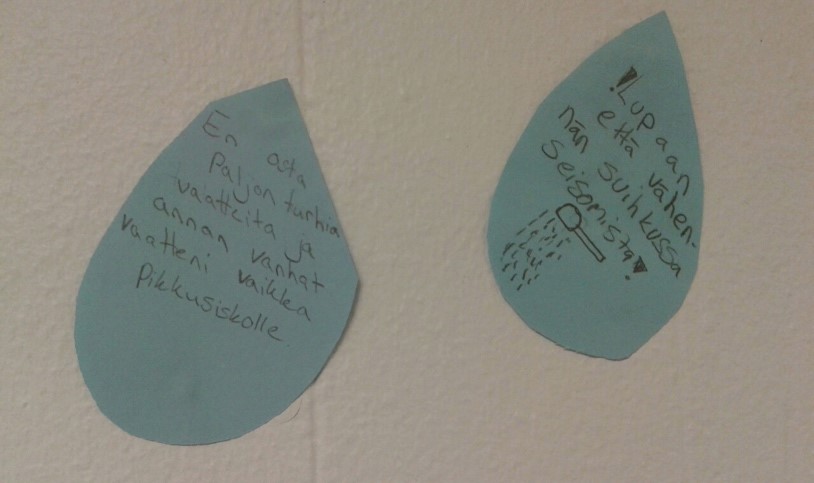 En osta
paljon turhia
vaatteita ja
annan vanhat
vaatteni vaikka
Pikkusiskolle
!Lupaan
että vähen-
nän suihkussa
seisomista!